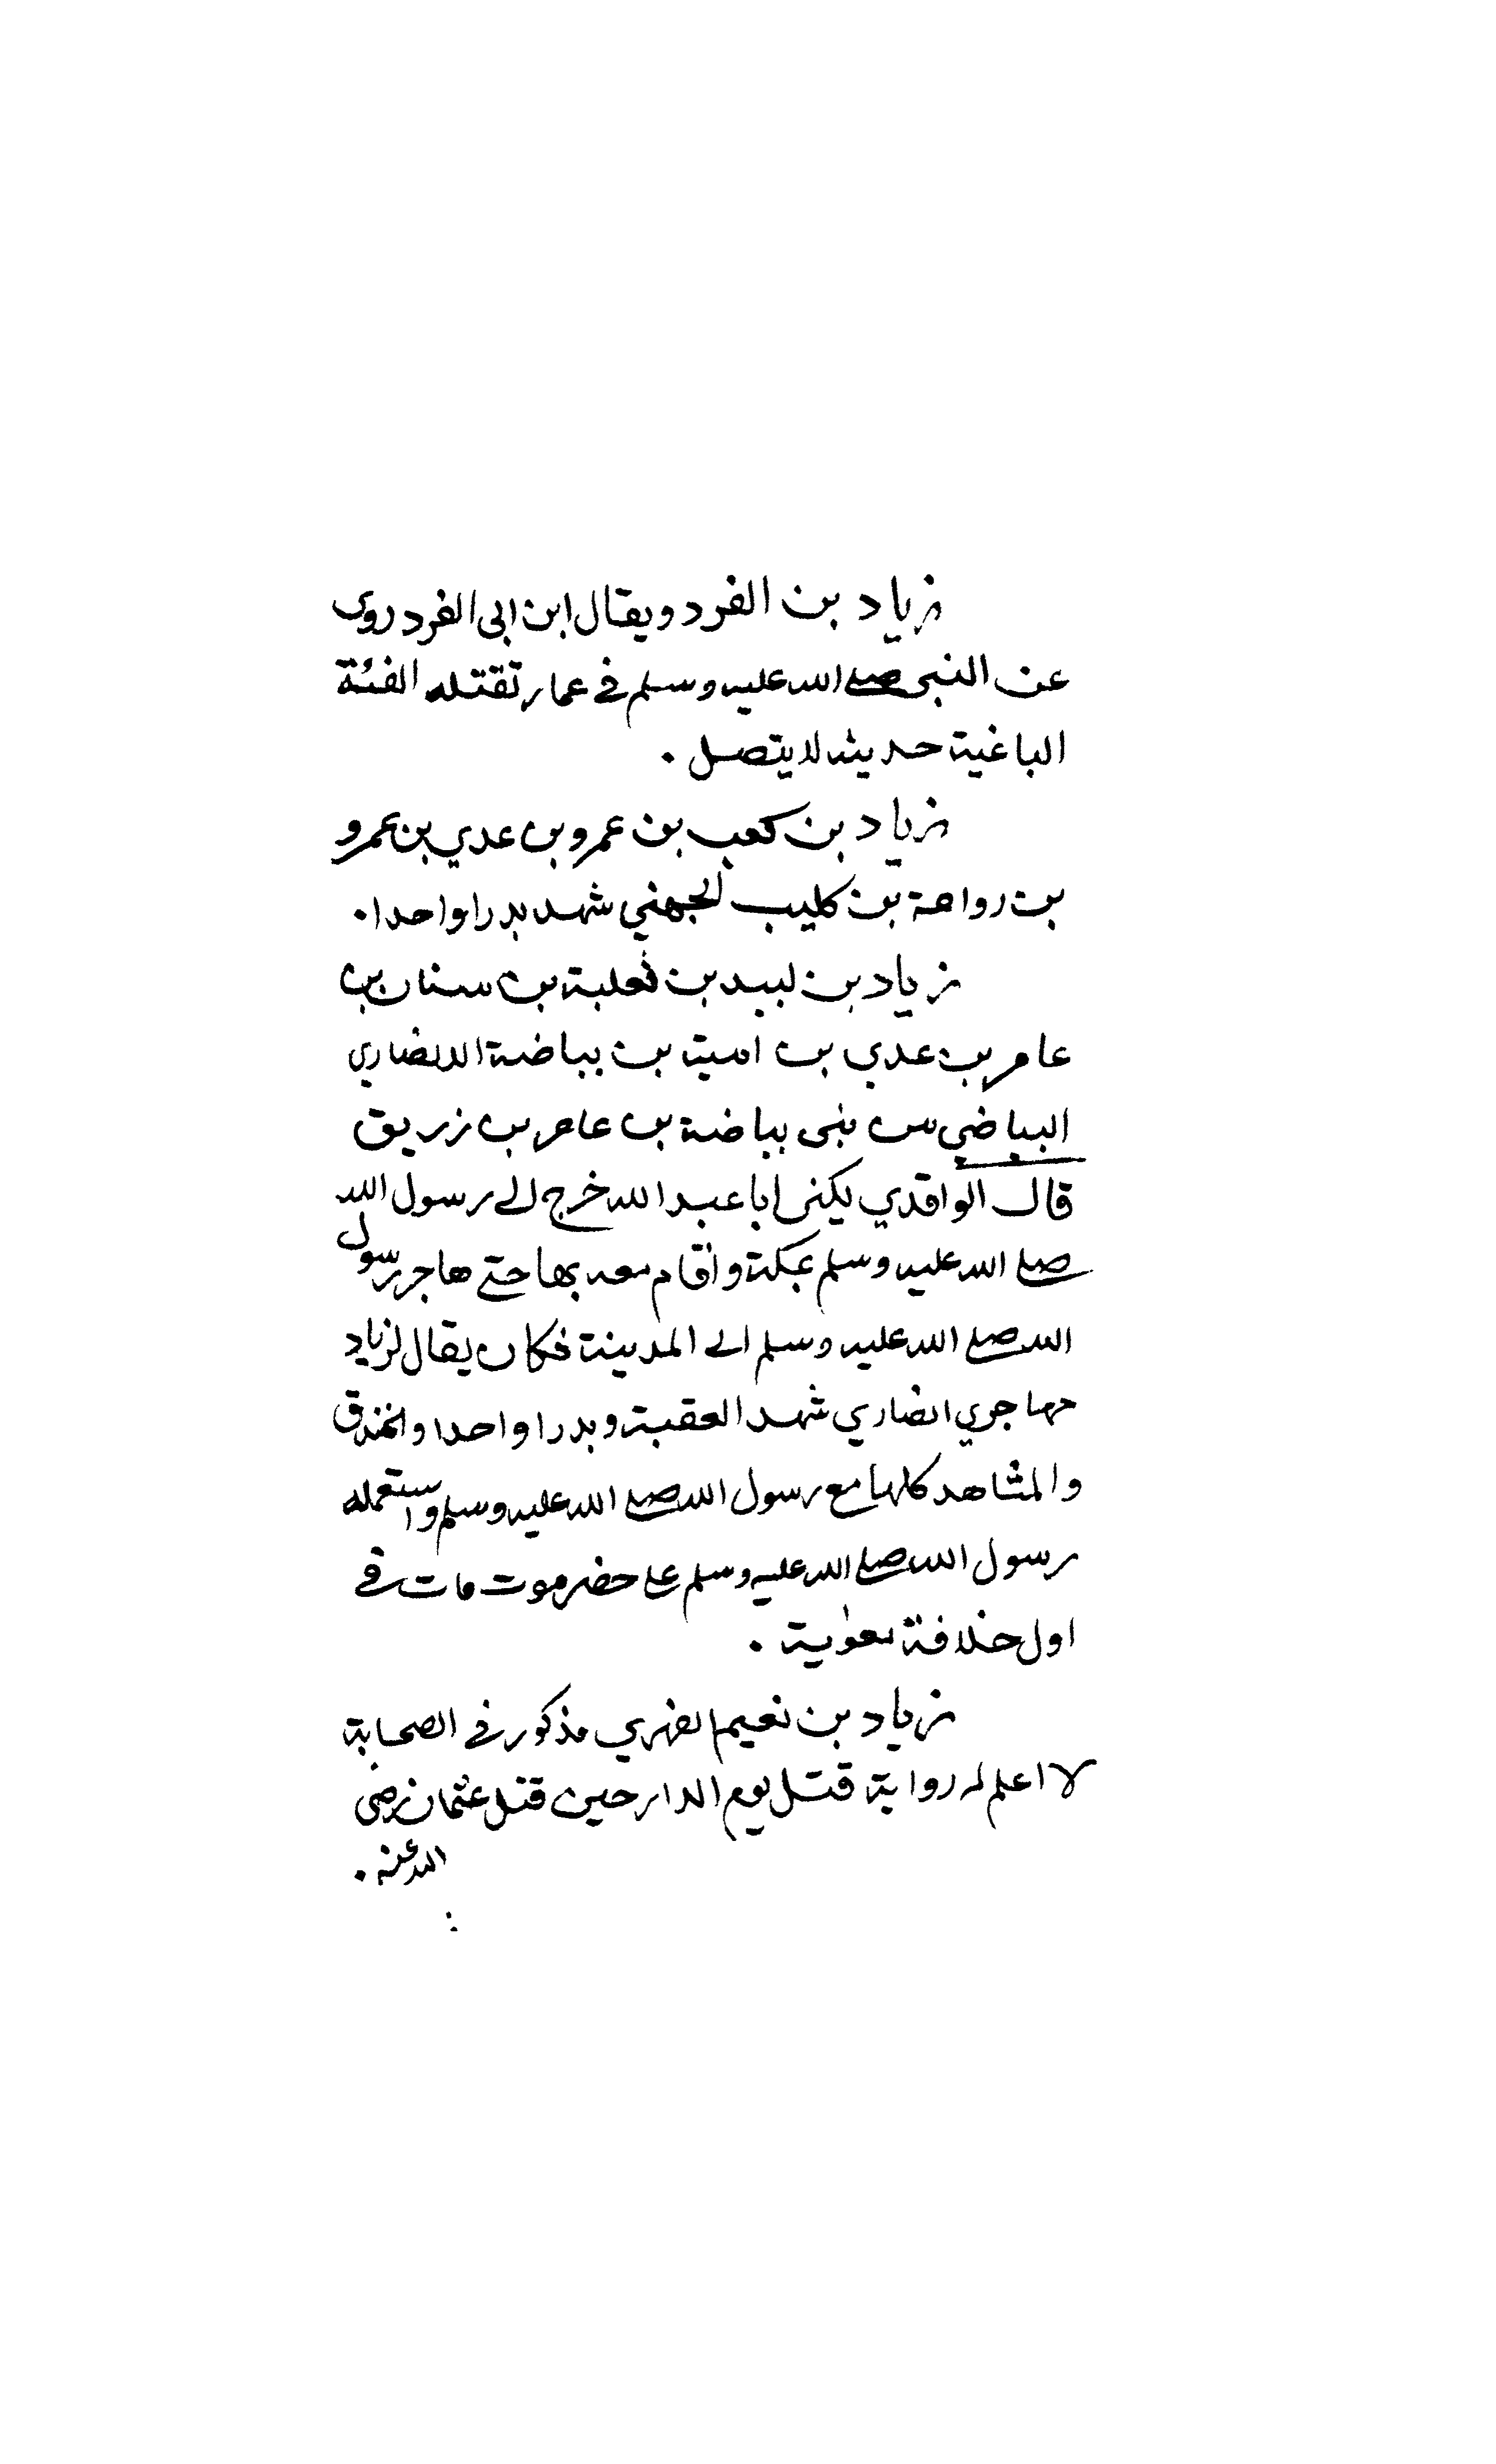 زياد بن الفرد ويقال ابن ابى الفرد روى
عن النبى صلى الله عليه وسلم في عمار تقتله الفئة
الباغية حديثه لا يتصل .
زياد بن كعب بن عمرو بن عدي بن عمرو
بن رواعة بن كليب الجهني شهد بدرا واحدا .
زياد بن لبيد بن ثعلبة بن سنان بن
عامر بن عدي بن امية بن بياضة الانصاري
البياضي من بنى بياضة بن عامر بن زريق
قال الواقدي يكنى ابا عبد الله خرج الى رسول الله
صلى الله عليه وسلم بمكة واقام معه بها حتى هاجر رسول
الله صلى الله عليه وسلم الى المدينة فكان يقال لزياد
مهاجري انصاري شهد العقبة وبدرا واحدا والخندق
والمشاهد كلها مع رسول الله صلى الله عليه وسلم واستعمله
رسول الله صلى الله عليه وسلم على حضرموت مات في
اول خلافة معوية .
زياد بن نعيم الفهري مذكور في الصحابة
لا اعلم له رواية قتل يوم الدار حين قتل عثمان رضى
الله عنه .